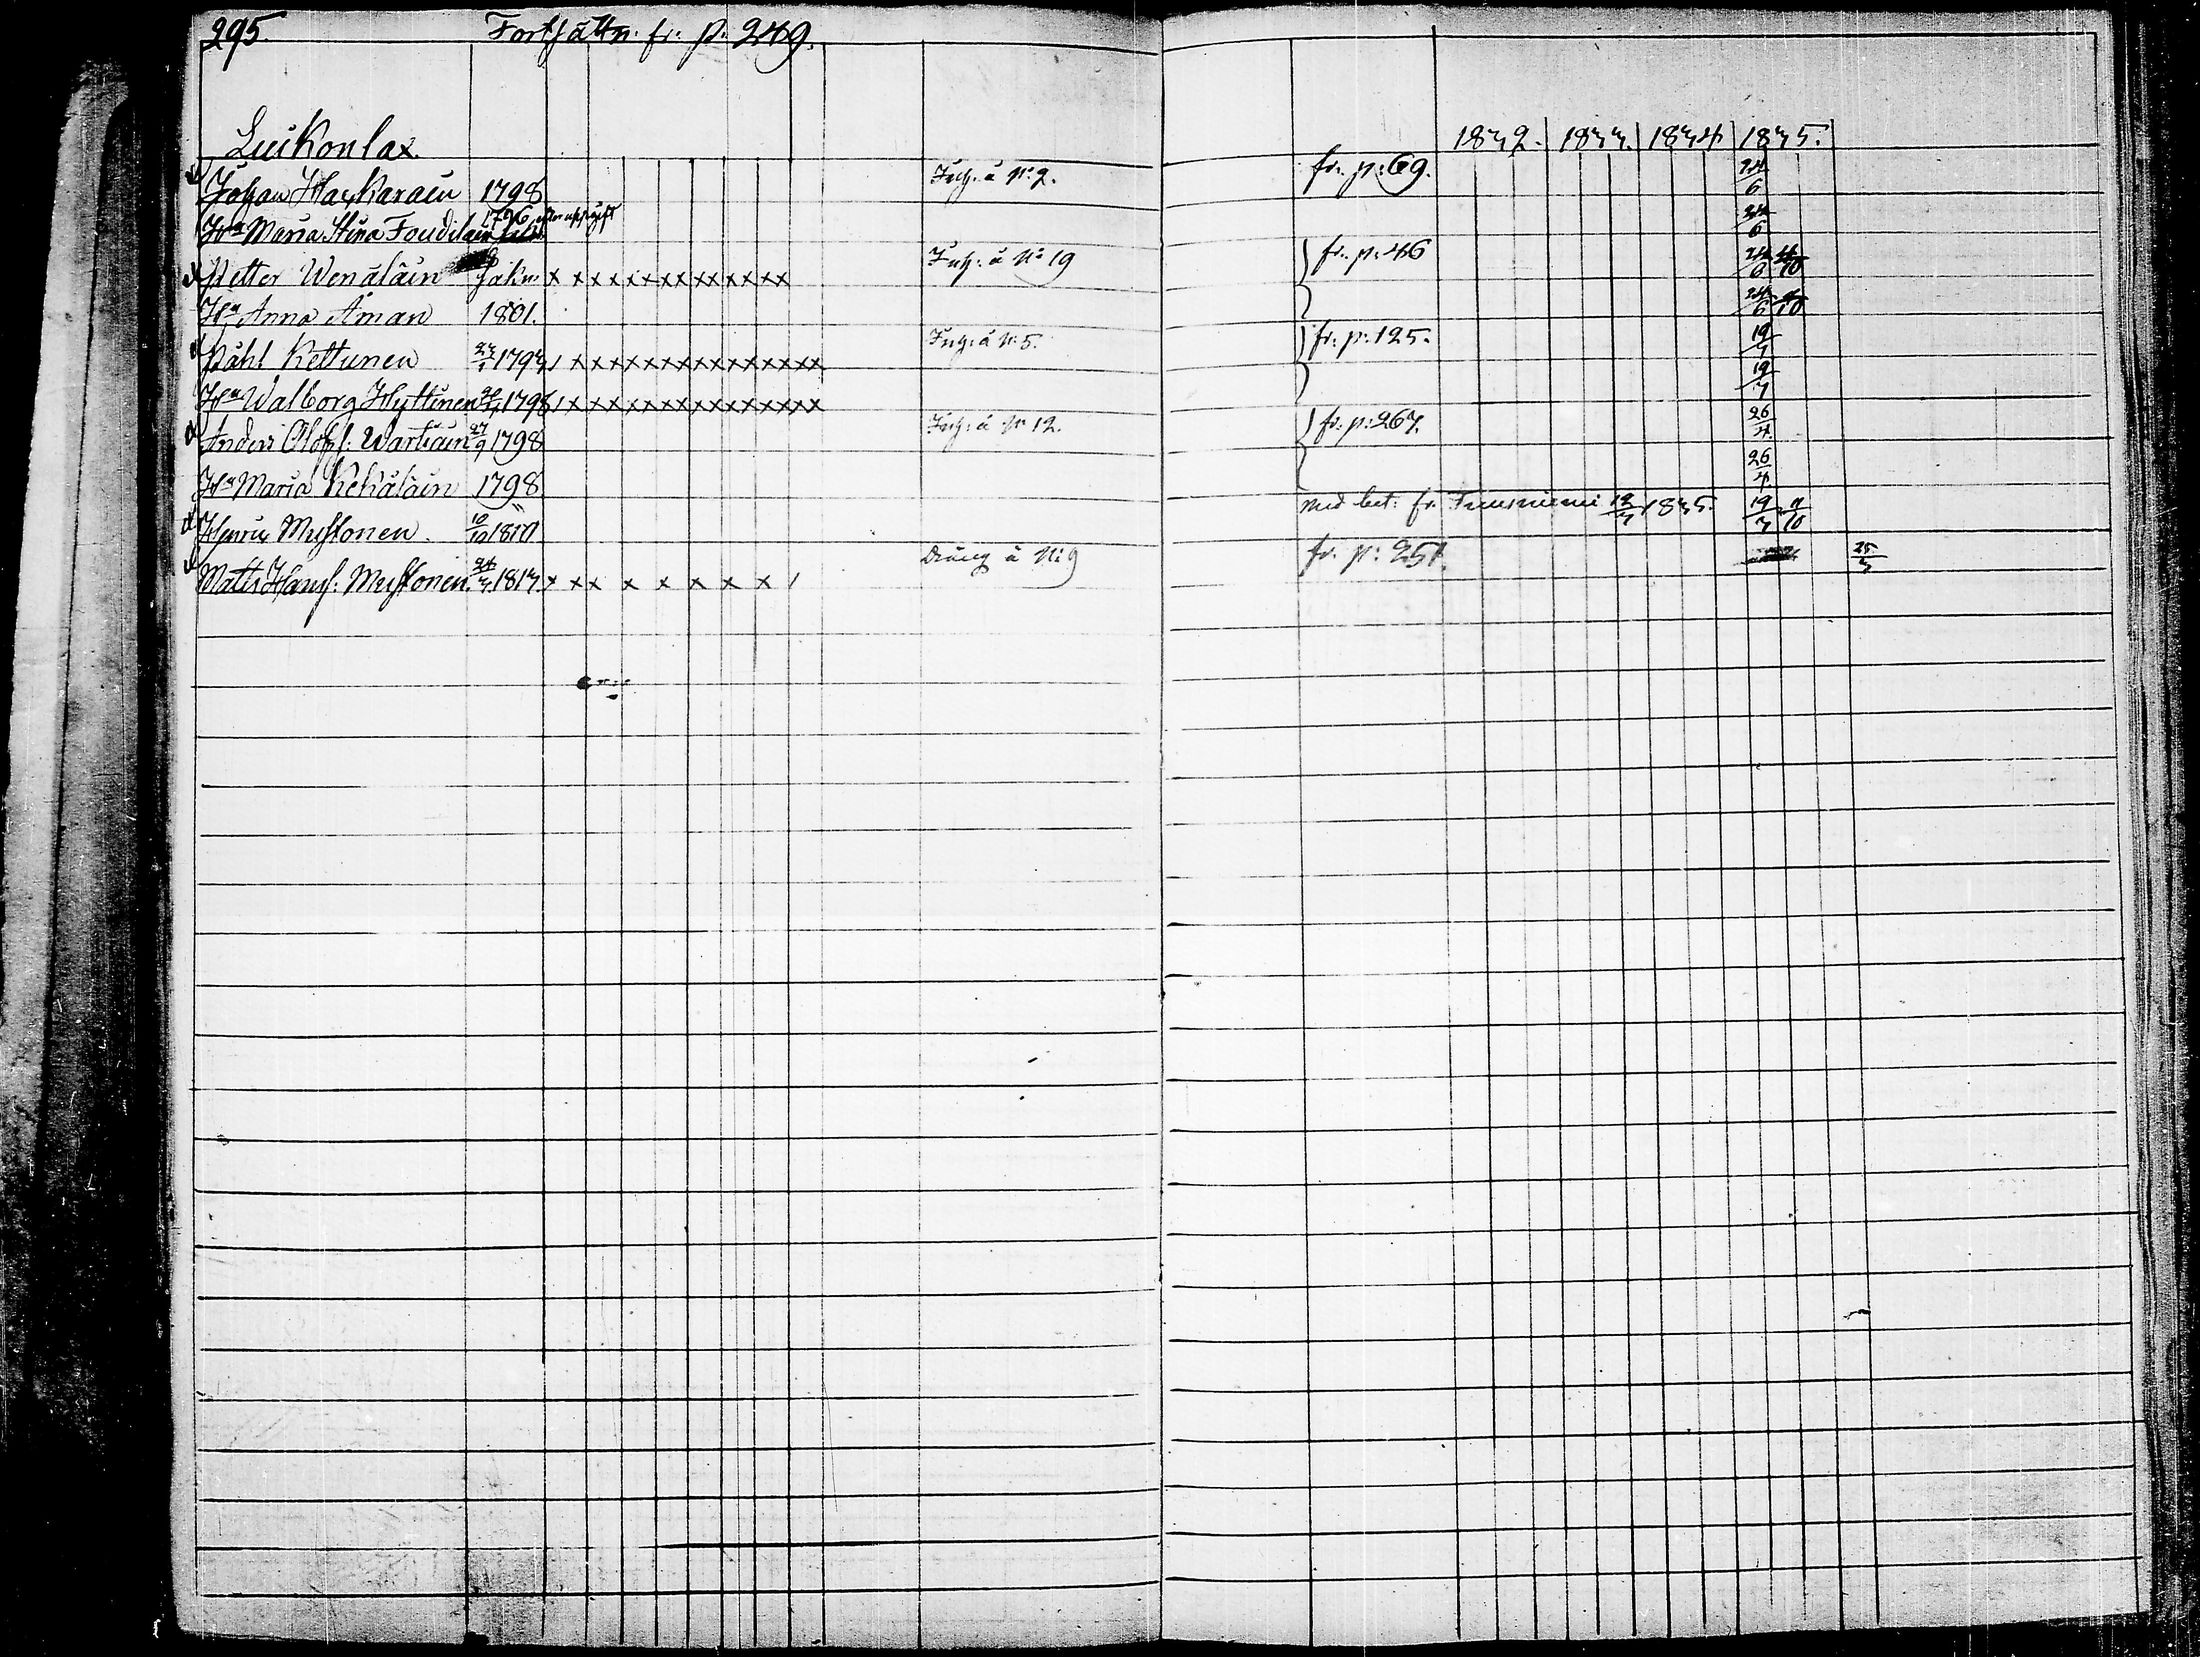 295. Fortsättn. fr. p. 249.
Luikonlax.
1832. 1833. 1834 1835.
Johan Haykarain 1798 Inh. å No 2. fr. p: 69. 24/6
1796 efter uppgift
Hu Maria Stina Foudilain 24/6
Petter Wenäläin x x x x x x x x x x x x x Inh. å No 19 fr. p: 46 24/6 4/10
Hu Anna Åman 1801. 24/6 4/10
Påhl Kettunen 1793 x x x x x x x x x x x x x x Inh. å N: 5. fr. p: 125. 19/7
Hu Walborg Hyttinen 1798 x x x x x x x x x x x x x x 19/7
Anders Olofs: Wartiain 27/9 1798 Inh. å No 12. fr. p: 267. 26/4
Hu Maria Kekäläin 1798 26/4
Henric Mustonen. 10/10 1810 med bet. fr. 1835. 19/7 11/10
Matts Hans: Mustonen. 1813. x x x x x x x x / Dräng å N: 9 fr. p: 251. 25/3